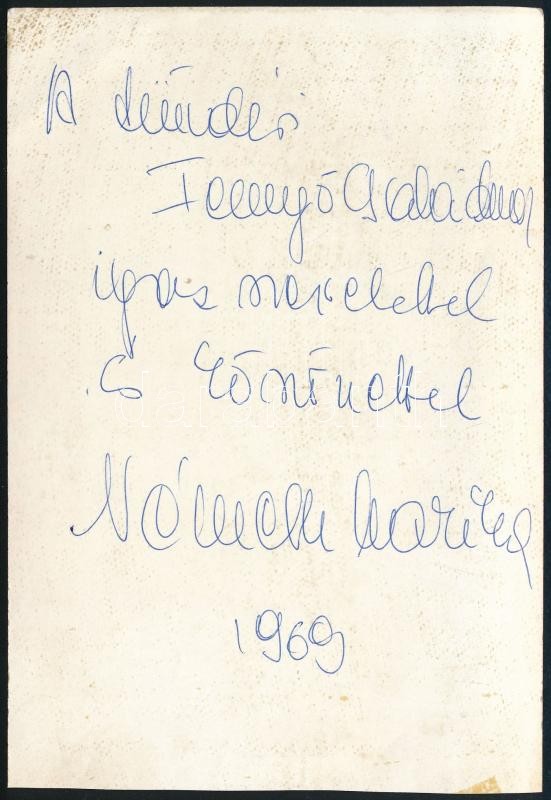 A tündéri
Családnak
igaz szeretettel
és köszönettel
Németh Marika
1969